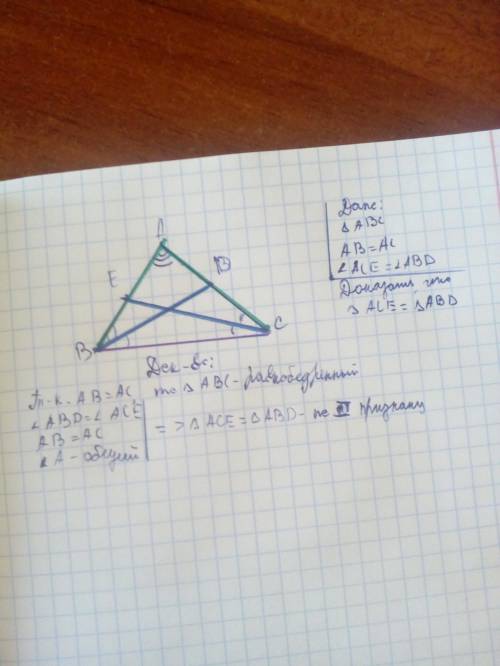 A
E
D
B
C
Дано:
△ABC
AB=AC
∠ACE=∠ABD
Доказать что
△ACE=△ABD
Док-во:
Т.к. AB=AC то △ABC- равнобедренный
∠ABD=∠ACE
AB=AC
=>△ACE=△ABD- по II признаку
∠A-общий